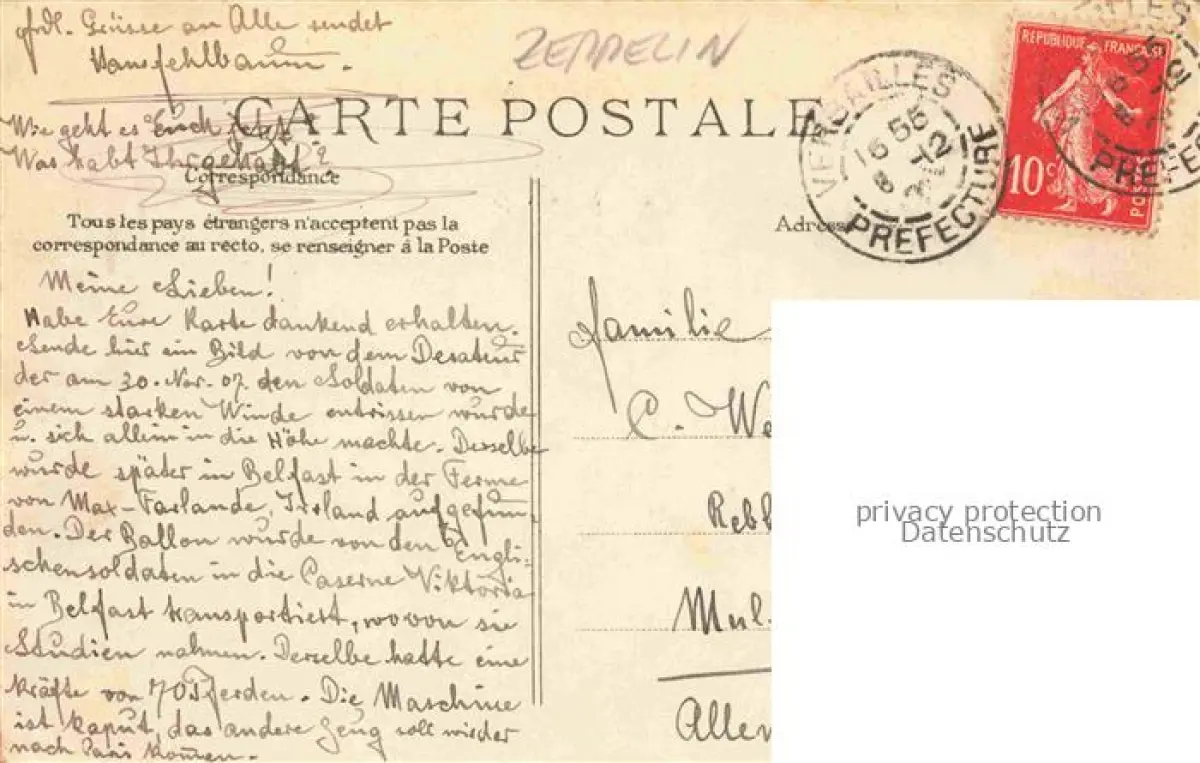 frdl. Grüsse an Alle sendet
Hans Fehlbaum.
ZEPPELIN
CARTE POSTALE
Wie geht es Euch jetzt?
Was habt Ihr gehabt?
Correspondance
Tous les pays étrangers n'acceptent pas la
correspondance au recto, se renseigner à la Poste
Meine Lieben!
Habe Eure Karte dankend erhalten.
Sende hier ein Bild von dem Desateur
der am 30. Nov. 07. den Soldaten von
einem starken Winde entrissen wurde
u. sich allein in die Höhe machte. Derselbe
wurde später in Belfast in der Ferme
von Max-Farlande, Irland aufgefun-
den. Der Ballon wurde von den Engli-
schensoldaten in die Caserne Viktoria
in Belfast transportiert, wovon sie
Studien nahmen. Derselbe hatte eine
kräfte von 70 Pferden. Die Maschine
ist kaput, das andere Zeug soll wieder
nach Paris kommen.
Adresse
VERSAILLES
16 55
8
12
PRÉFECTURE
RÉPUBLIQUE FRANÇAISE
10c
POSTES
Familie
C. We
Rebb
Mul
Allem
privacy protection
Datenschutz